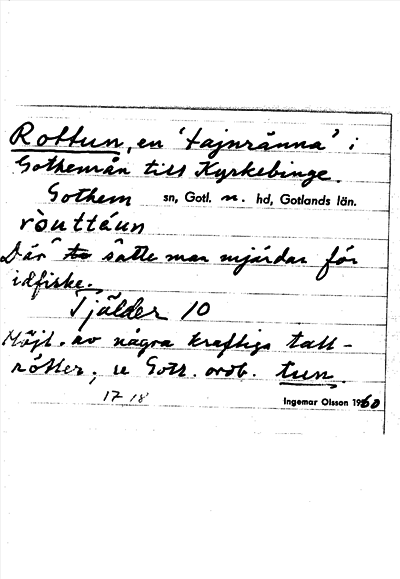 Rottun, en 'tajnränna' i
Gothemån till Kyrkebinge.
Gothem sn, Gotl. n. hd, Gotlands län.
ròuttáun
Där satte man mjärdar för
idfiske.
Tjälder 10
Möjl. av några kraftiga tall-
rötter; se Gotl. ordb. tun.
17 18
Ingemar Olsson 1960